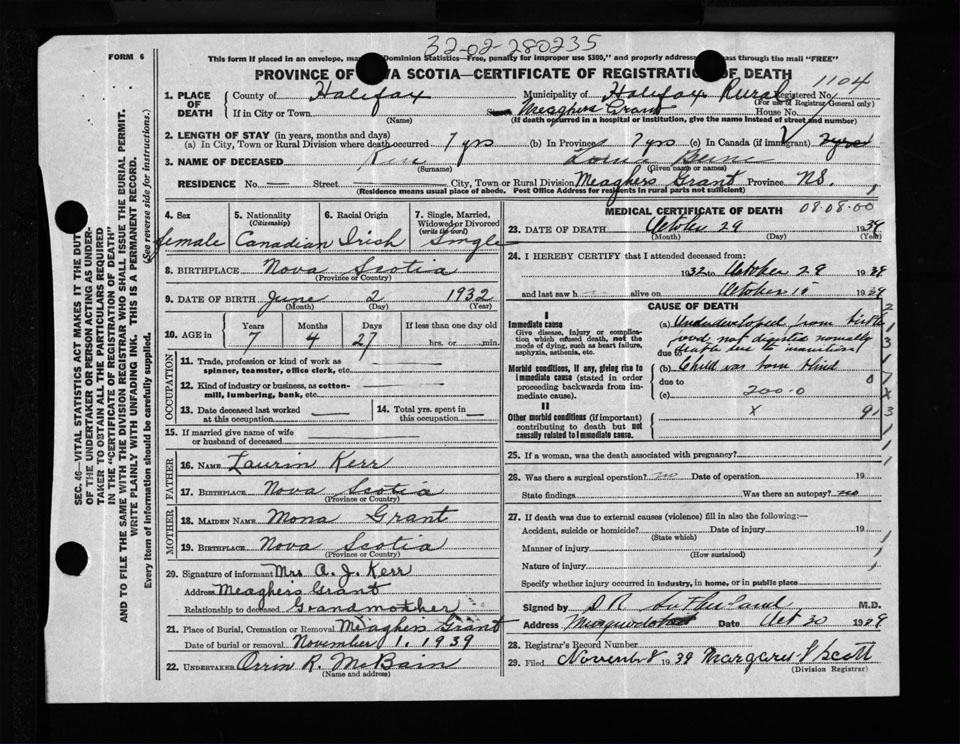 32-02-280235
FORM 6
This form If placed in an envelope, Dominion Statistics—Free, penalty for improper use $300," and properly pass through the mail "FREE"
PROVINCE OF NOVA SCOTIA—CERTIFICATE OF REGISTRATION OF DEATH
1104
1. PLACE OF DEATH
County of Halifax Municipality of Halifax Rural Registered No.
(For use of Registrar General only)
If in City or Town (Name) Meaghers Grant House No.
(If death occurred in a hospital or institution, give the name instead of street and number)
2. LENGTH OF STAY (in years, months and days)
(a) In City, Town or Rural Division where death occurred 7 yrs (b) In Province 7 yrs (c) In Canada (if immigrant)
3. NAME OF DECEASED Lorna
(Surname) (Given name or names)
RESIDENCE No. — Street — City, Town or Rural Division Meaghers Grant Province NS.
(Residence means usual place of abode. Post Office Address for residents in rural parts not sufficient)
4. Sex female
5. Nationality (Citizenship) Canadian
6. Racial Origin Irish
7. Single, Married, Widowed or Divorced (write the word) Single
8. BIRTHPLACE Nova Scotia
(Province or Country)
9. DATE OF BIRTH June 2 1932
(Month) (Day) (Year)
10. AGE in Years Months Days If less than one day
7 4 27 hrs. or min.
OCCUPATION
11. Trade, profession or kind of work as spinner, teamster, office clerk, etc.
12. Kind of industry or business, as cotton-mill, lumbering, bank, etc.
13. Date deceased last worked at this occupation
14. Total yrs. spent in this occupation
15. If married give name of wife or husband of deceased
FATHER
16. NAME Laurin Kerr
17. BIRTHPLACE Nova Scotia
(Province or Country)
MOTHER
18. MAIDEN NAME Mona Grant
19. BIRTHPLACE Nova Scotia
(Province or Country)
20. Signature of informant Mrs A. J. Kerr
Address Meaghers Grant
Relationship to deceased Grandmother
21. Place of Burial, Cremation or Removal Meaghers Grant
Date of burial or removal November 1, 1939
22. UNDERTAKER Orrin R. McBain
(Name and address)
MEDICAL CERTIFICATE OF DEATH 08-08-00
23. DATE OF DEATH October 29 1939
(Month) (Day) (Year)
24. I HEREBY CERTIFY that I attended deceased from:
1932 to October 29 1939
and last saw h alive on October 15 1939
CAUSE OF DEATH
I
Immediate cause
Give disease, injury or complication which caused death, not the mode of dying, such as heart failure, asphyxia, asthenia, etc.
(a) Underdeveloped from birth
food not digested normally
due to death due to inanition
Morbid conditions, if any, giving rise to immediate cause (stated in order proceeding backwards from immediate cause).
(b) Child was born blind
due to
(c) 200-0
II
Other morbid conditions (if important) contributing to death but not causally related to immediate cause.
x
913
25. If a woman, was the death associated with pregnancy?
26. Was there a surgical operation? no Date of operation 19
State findings Was there an autopsy? no
27. If death was due to external causes (violence) fill in also the following:—
Accident, suicide or homicide? Date of injury 19
(State which)
Manner of injury
(How sustained)
Nature of injury
Specify whether injury occurred in industry, in home, or in public place
Signed by D R Sutherland M.D.
Address Date Oct 30 1939
28. Registrar's Record Number
29. Filed Novem 8 1939 Scott
(Division Registrar)
SEC. 46—VITAL STATISTICS ACT MAKES IT THE DUTY
OF THE UNDERTAKER OR PERSON ACTING AS UNDER-
TAKER TO OBTAIN ALL THE PARTICULARS REQUIRED
IN THE "CERTIFICATE OF REGISTRATION OF DEATH"
AND TO FILE THE SAME WITH THE DIVISION REGISTRAR WHO SHALL ISSUE THE BURIAL PERMIT.
WRITE PLAINLY WITH UNFADING INK. THIS IS A PERMANENT RECORD.
Every item of information should be carefully supplied. (See reverse side for instructions.)